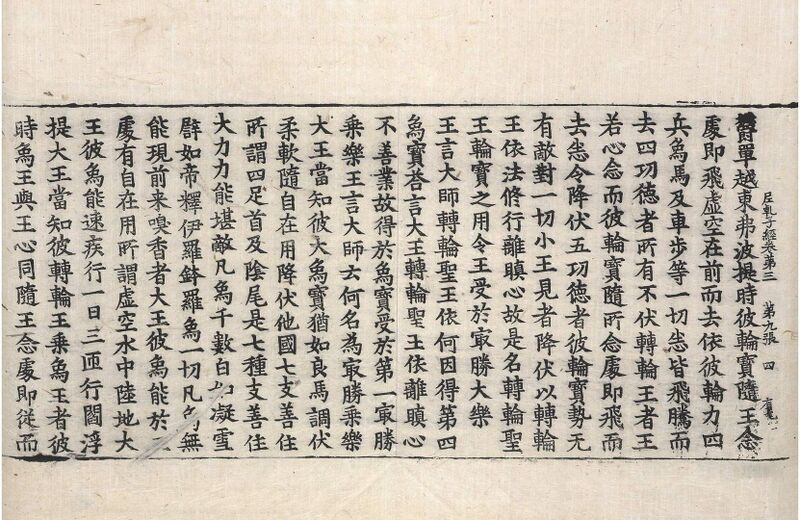 尼乹子經卷第三　第九張　四
欝單越東弗波提時彼輪寶隨王念
處即飛虛空在前而去依彼輪力四
兵象馬及車步等一切悉皆飛騰而
去四功德者所有不伏轉輪王者王
若心念而彼輪寶隨所念處即飛而
去悉令降伏五功德者彼輪寶勢无
有敵對一切小王見者降伏以轉輪
王依法修行離瞋心故是名轉輪聖
王輪寶之用令王受於㝡勝大樂
王言大師轉輪聖王依何因得第四
象寶荅言大王轉輪聖王依離瞋心
不善業故得於象寶受於第一㝡勝
乘樂王言大師云何名為㝡勝乘樂
大王當知彼大象寶猶如良馬調伏
柔軟隨自在用降伏他國七支善住
所謂四足首及陰尾是七種支善住
大力力能堪敵凡象千數白如凝雪
譬如帝釋伊羅鉢羅象一切凡象無
能現前来嗅香者大王彼象能於一
處有自在用所謂虛空水中陸地大
王彼象能速疾行一日三匝行閻浮
提大王當知彼轉輪王乘象王者彼
時象王與王心同隨王念處即從而